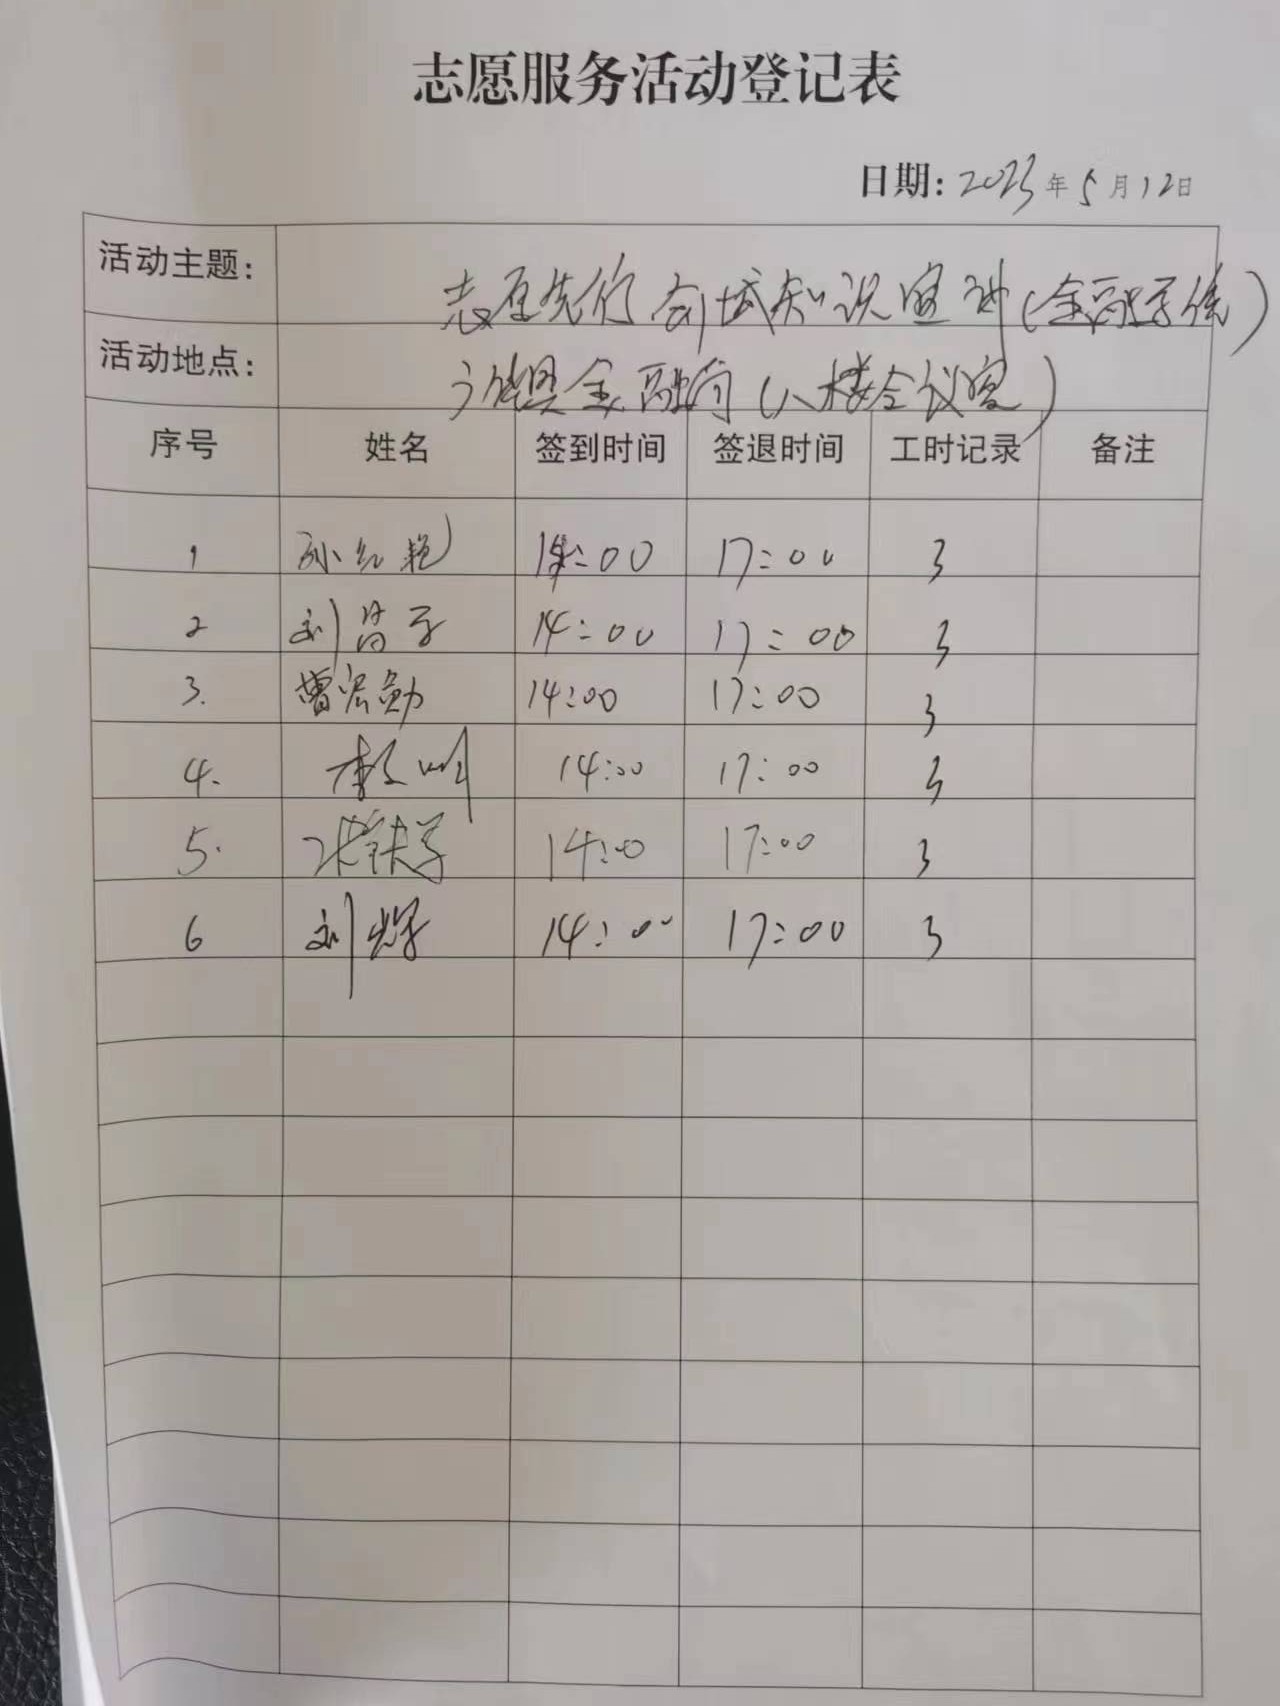 志愿服务活动登记表
日期: 2023年5月12日
活动主题: 志愿先行 创城知识宣讲(金融系统)
活动地点: 金融局(八楼会议室)
序号 姓名 签到时间 签退时间 工时记录 备注
1 孙红艳 14:00 17:00 3
2 刘昌子 14:00 17:00 3
3. 曹宏勋 14:00 17:00 3
4. 14:00 17:00 3
5. 14:00 17:00 3
6 刘辉 14:00 17:00 3